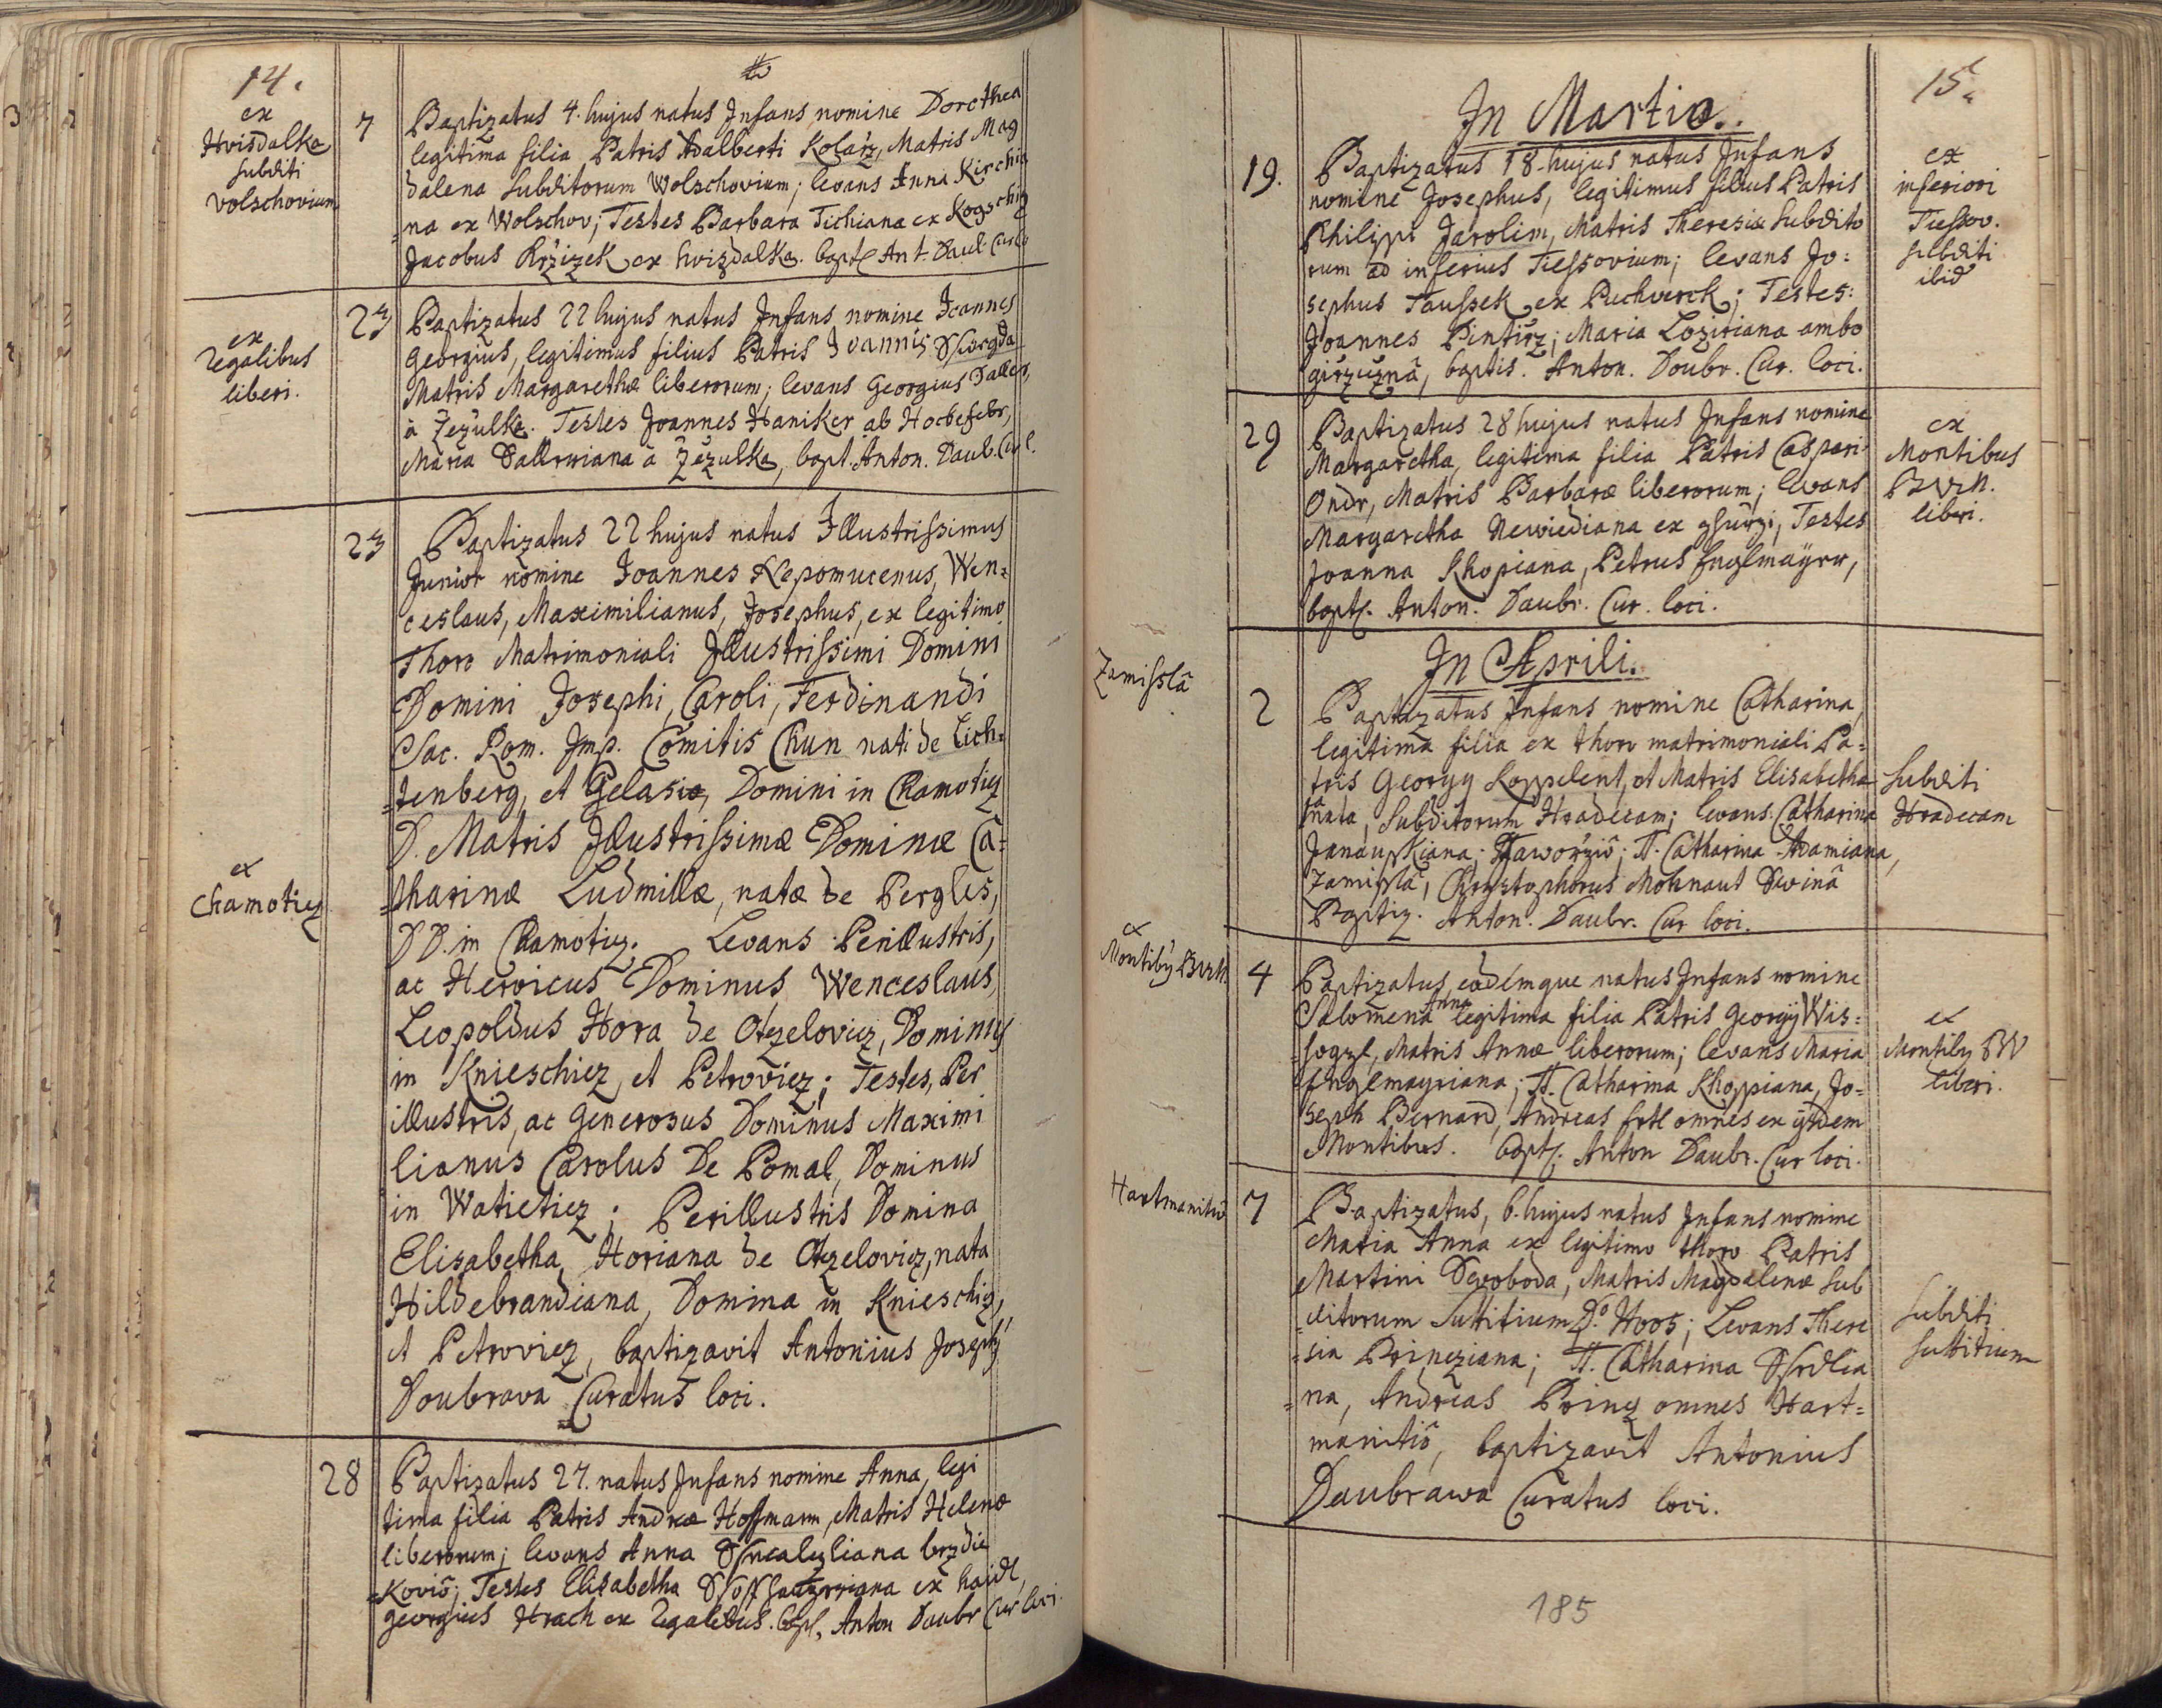 14.
ex
Hvisdalka
subditi
Volschovium
7
Baptizatus 4. hujus natus Infans nomine Dorothea
legitima filia Patris Adalberti Kolarz, Matris Mag
dalena subditorum Wolschovium; levans Anna Kirchia
=na ex Wolschov; Testes Barbara Tichiana ex Kogschitz
Jacobus Krzizek ex hvizdalka. bapt. Ant. Daub. Cur. lo
ex
regalibus
liberi.
23
Baptizatus 22 hujus natus Infans nomine Joannes
Georgius, legitimus filius Patris Joannis
Matris Margarethæ liberorum; levans Georgius
à Zezulka. Testes Joannes Haniker ab
Maria à Zezulka, bapt. Anton. Daub. Cur l.
23
Baptizatus 22 hujus natus Illustrissimus
Junior nomine Joannes Nepomucenus, Wen=
ceslaus, Maximilianus, Josephus, ex legitimo
Thoro Matrimoniali Illustrissimi Domini
Domini Josephi, Caroli, Ferdinandi
Sac. Rom. Imp. Comitis Chun nati de Lich=
=tenberg, et Gelasio, Domini in Chamotiez
D. Matris Illustrissimæ Dominæ Ca=
ex
Chamotiez
=tharinæ Ludmillæ, natæ de Pergles,
DD. in Chamotiez. Levans Perillustris,
ac Heroicus Dominus Wenceslaus,
Leopoldus Hora de Otzelovicz, Dominus
in Knieschicz, et Petroviez; Testes, Per
illustris, ac Generosus Dominus Maximi
lianus Carolus De Pomal, Dominus
in Watietiez; Perillustris Domina
Elisabetha Horiana de Otzelovicz, nata
Hildebrandiana, Domina in Knieschiz,
et Petroviez, baptizavit Antonius Josephus
Doubrava Curatus loci.
28
Baptizatus 27. natus Infans nomine Anna, legi
tima filia Patris Andreæ Hoffmann, Matris Helenæ
liberorum; levans Anna
=kovis; Testes Elisabetha ex haidl,
Georgius Hrach ex regalibus. bapt. Anton Daubr Cur loci.
15.
In Martio.
19.
Baptizatus 18. hujus natus Infans
nomine Josephus, legitimus filius Patris
Philippi Jarolim, Matris Theresiæ subdito
rum ad inferius Tiessovium; levans Jo=
sephus Taussek ex Puchverck; Testes:
Joannes Pintirz; Maria Loziriana ambo
girzicznâ, baptis. Anton. Doubr. Cur. loci.
ex
inferiori
Tiessov.
subditi
ibid
29
Baptizatus 28 hujus natus Infans nomine
Margaretha, legitima filia Patris Caspari
Ondr, Matris Barbaræ liberorum; levans
Margaretha Newiediana ex, Testes
Joanna Khopiana, Petrus Englmaÿrr,
bapt. Anton. Daubr. Cur. loci.
ex
Montibus
liberi.
In Aprili.
Zamisslâ
2
Baptizatus Infans nomine Catharina,
legitima filia ex thoro matrimoniali Pa=
tris Georgy Koppelent, et Matris Elisabetha
nata, subditorum Hradecam; levans Catharina
Janauskiana; Jaworziô; TT. Catharina Adamiana,
Zamisslâ, Chrystophorus Mohnaut Swinâ
Baptiz. Anton. Daubr. Cur loci.
subditi
Hradecam
ex
4
Baptizatus, eodemque natus Infans nomine
Salomena Anna legitima filia Patris Georgÿ Wis=
=sogzl, Matris Annæ liberorum; levans Maria
Englmayriana; TT. Catharina Khoppiana, Jo=
seph Bernard, Andreas Ertl omnes ex ijsdem
Montibus. bapt. Anton Daubr. Cur loci.
ex
Montiby BW
liberi.
Hartmanitiô
7
Baptizatus, 6. hujus natus Infans nomine
Maria Anna ex legitimo thoro Patris
Martini Swoboda, Matris Magdalenæ sub
=ditorum Suttitium Do. Hoos; Levans There
=sia Princziana; TT. Catharina
=na, Andreas Princz omnes Hart=
manitiô, baptizavit Antonius
Daubrawa Curatus loci.
subditi
suttitium
185